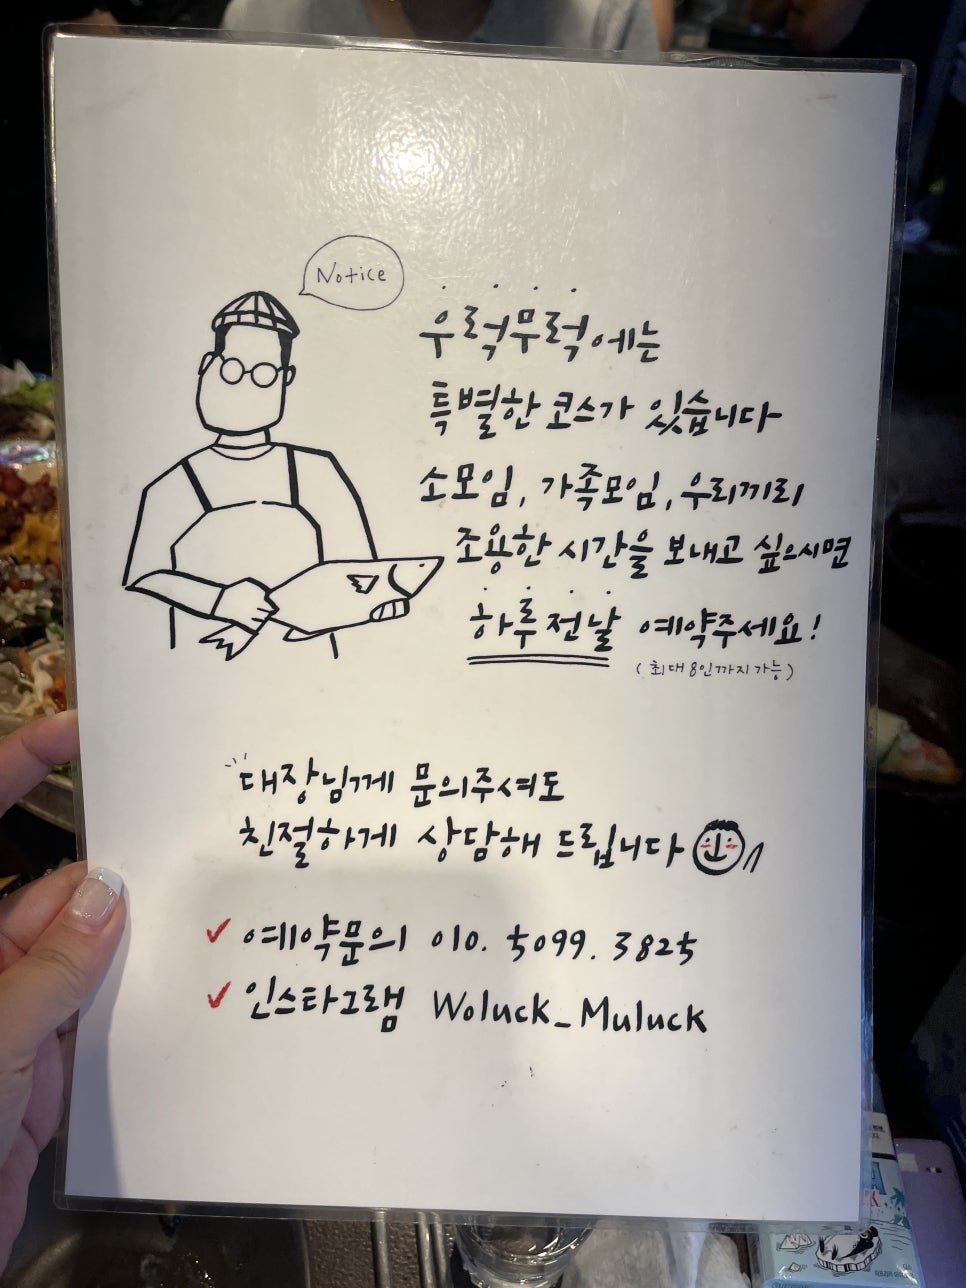 Notice
우럭무럭에는
특별한 코스가 있습니다
소모임, 가족모임, 우리끼리
조용한 시간을 보내고 싶으시면
하루 전날 예약주세요!
(최대 8인까지 가능)
대장님께 문의주셔도
친절하게 상담해 드립니다
✓ 예약문의 010. 5099. 3825
✓ 인스타그램 Woluck_Muluck